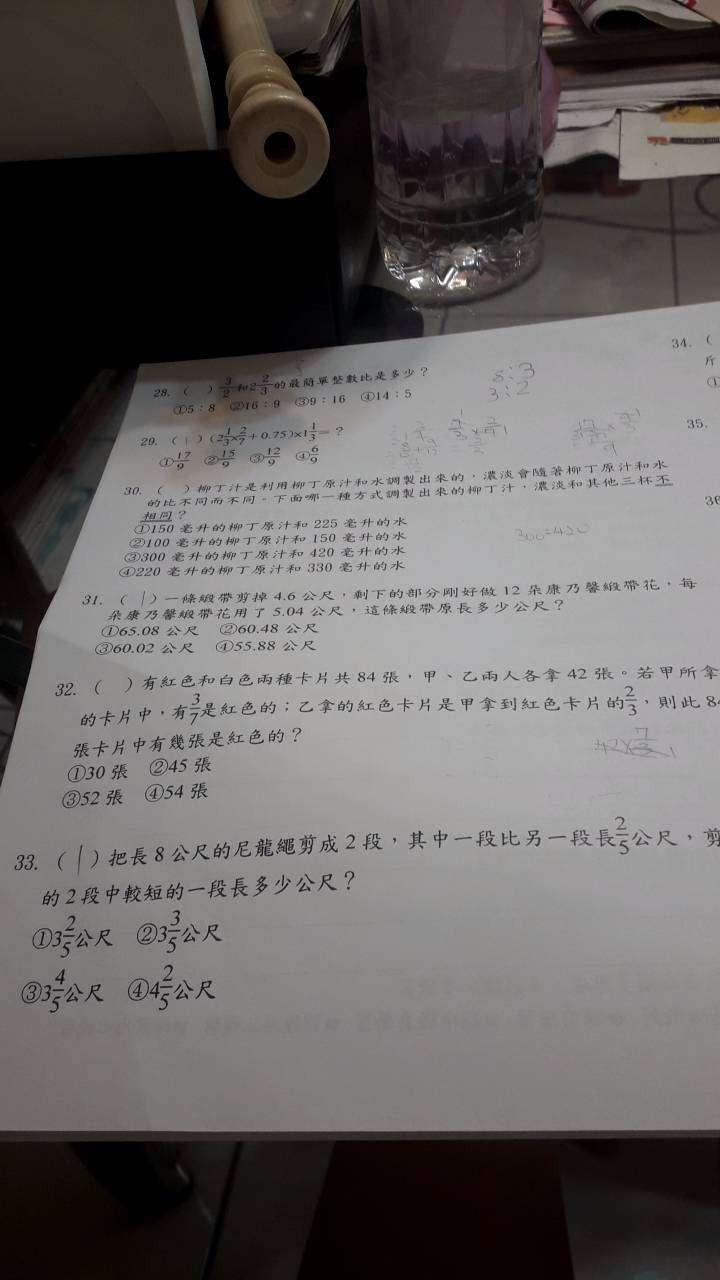 28. (　) 3/2 和 2 2/3 的最簡單整數比是多少？
①5：8 ②16：9 ③9：16 ④14：5
8:3
3:2
29. (1) (2 1/3 × 2/7 + 0.75) × 1 1/3 = ?
①17/9 ②15/9 ③12/9 ④6/9
30. (　) 柳丁汁是利用柳丁原汁和水調製出來的，濃淡會隨著柳丁原汁和水
的比不同而不同。下面哪一種方式調製出來的柳丁汁，濃淡和其他三杯不
相同？
①150 毫升的柳丁原汁和 225 毫升的水
②100 毫升的柳丁原汁和 150 毫升的水
③300 毫升的柳丁原汁和 420 毫升的水
④220 毫升的柳丁原汁和 330 毫升的水
300÷420
31. (1) 一條緞帶剪掉 4.6 公尺，剩下的部分剛好做 12 朵康乃馨緞帶花，每
朵康乃馨緞帶花用了 5.04 公尺，這條緞帶原長多少公尺？
①65.08 公尺 ②60.48 公尺
③60.02 公尺 ④55.88 公尺
32. (　) 有紅色和白色兩種卡片共 84 張，甲、乙兩人各拿 42 張。若甲所拿
的卡片中，有 3/7 是紅色的；乙拿的紅色卡片是甲拿到紅色卡片的 2/3，則此 8
張卡片中有幾張是紅色的？
①30 張 ②45 張
③52 張 ④54 張
33. (1) 把長 8 公尺的尼龍繩剪成 2 段，其中一段比另一段長 2/5 公尺，剪
的 2 段中較短的一段長多少公尺？
①3 2/5 公尺 ②3 3/5 公尺
③3 4/5 公尺 ④4 2/5 公尺
34. (
斤
①
35.